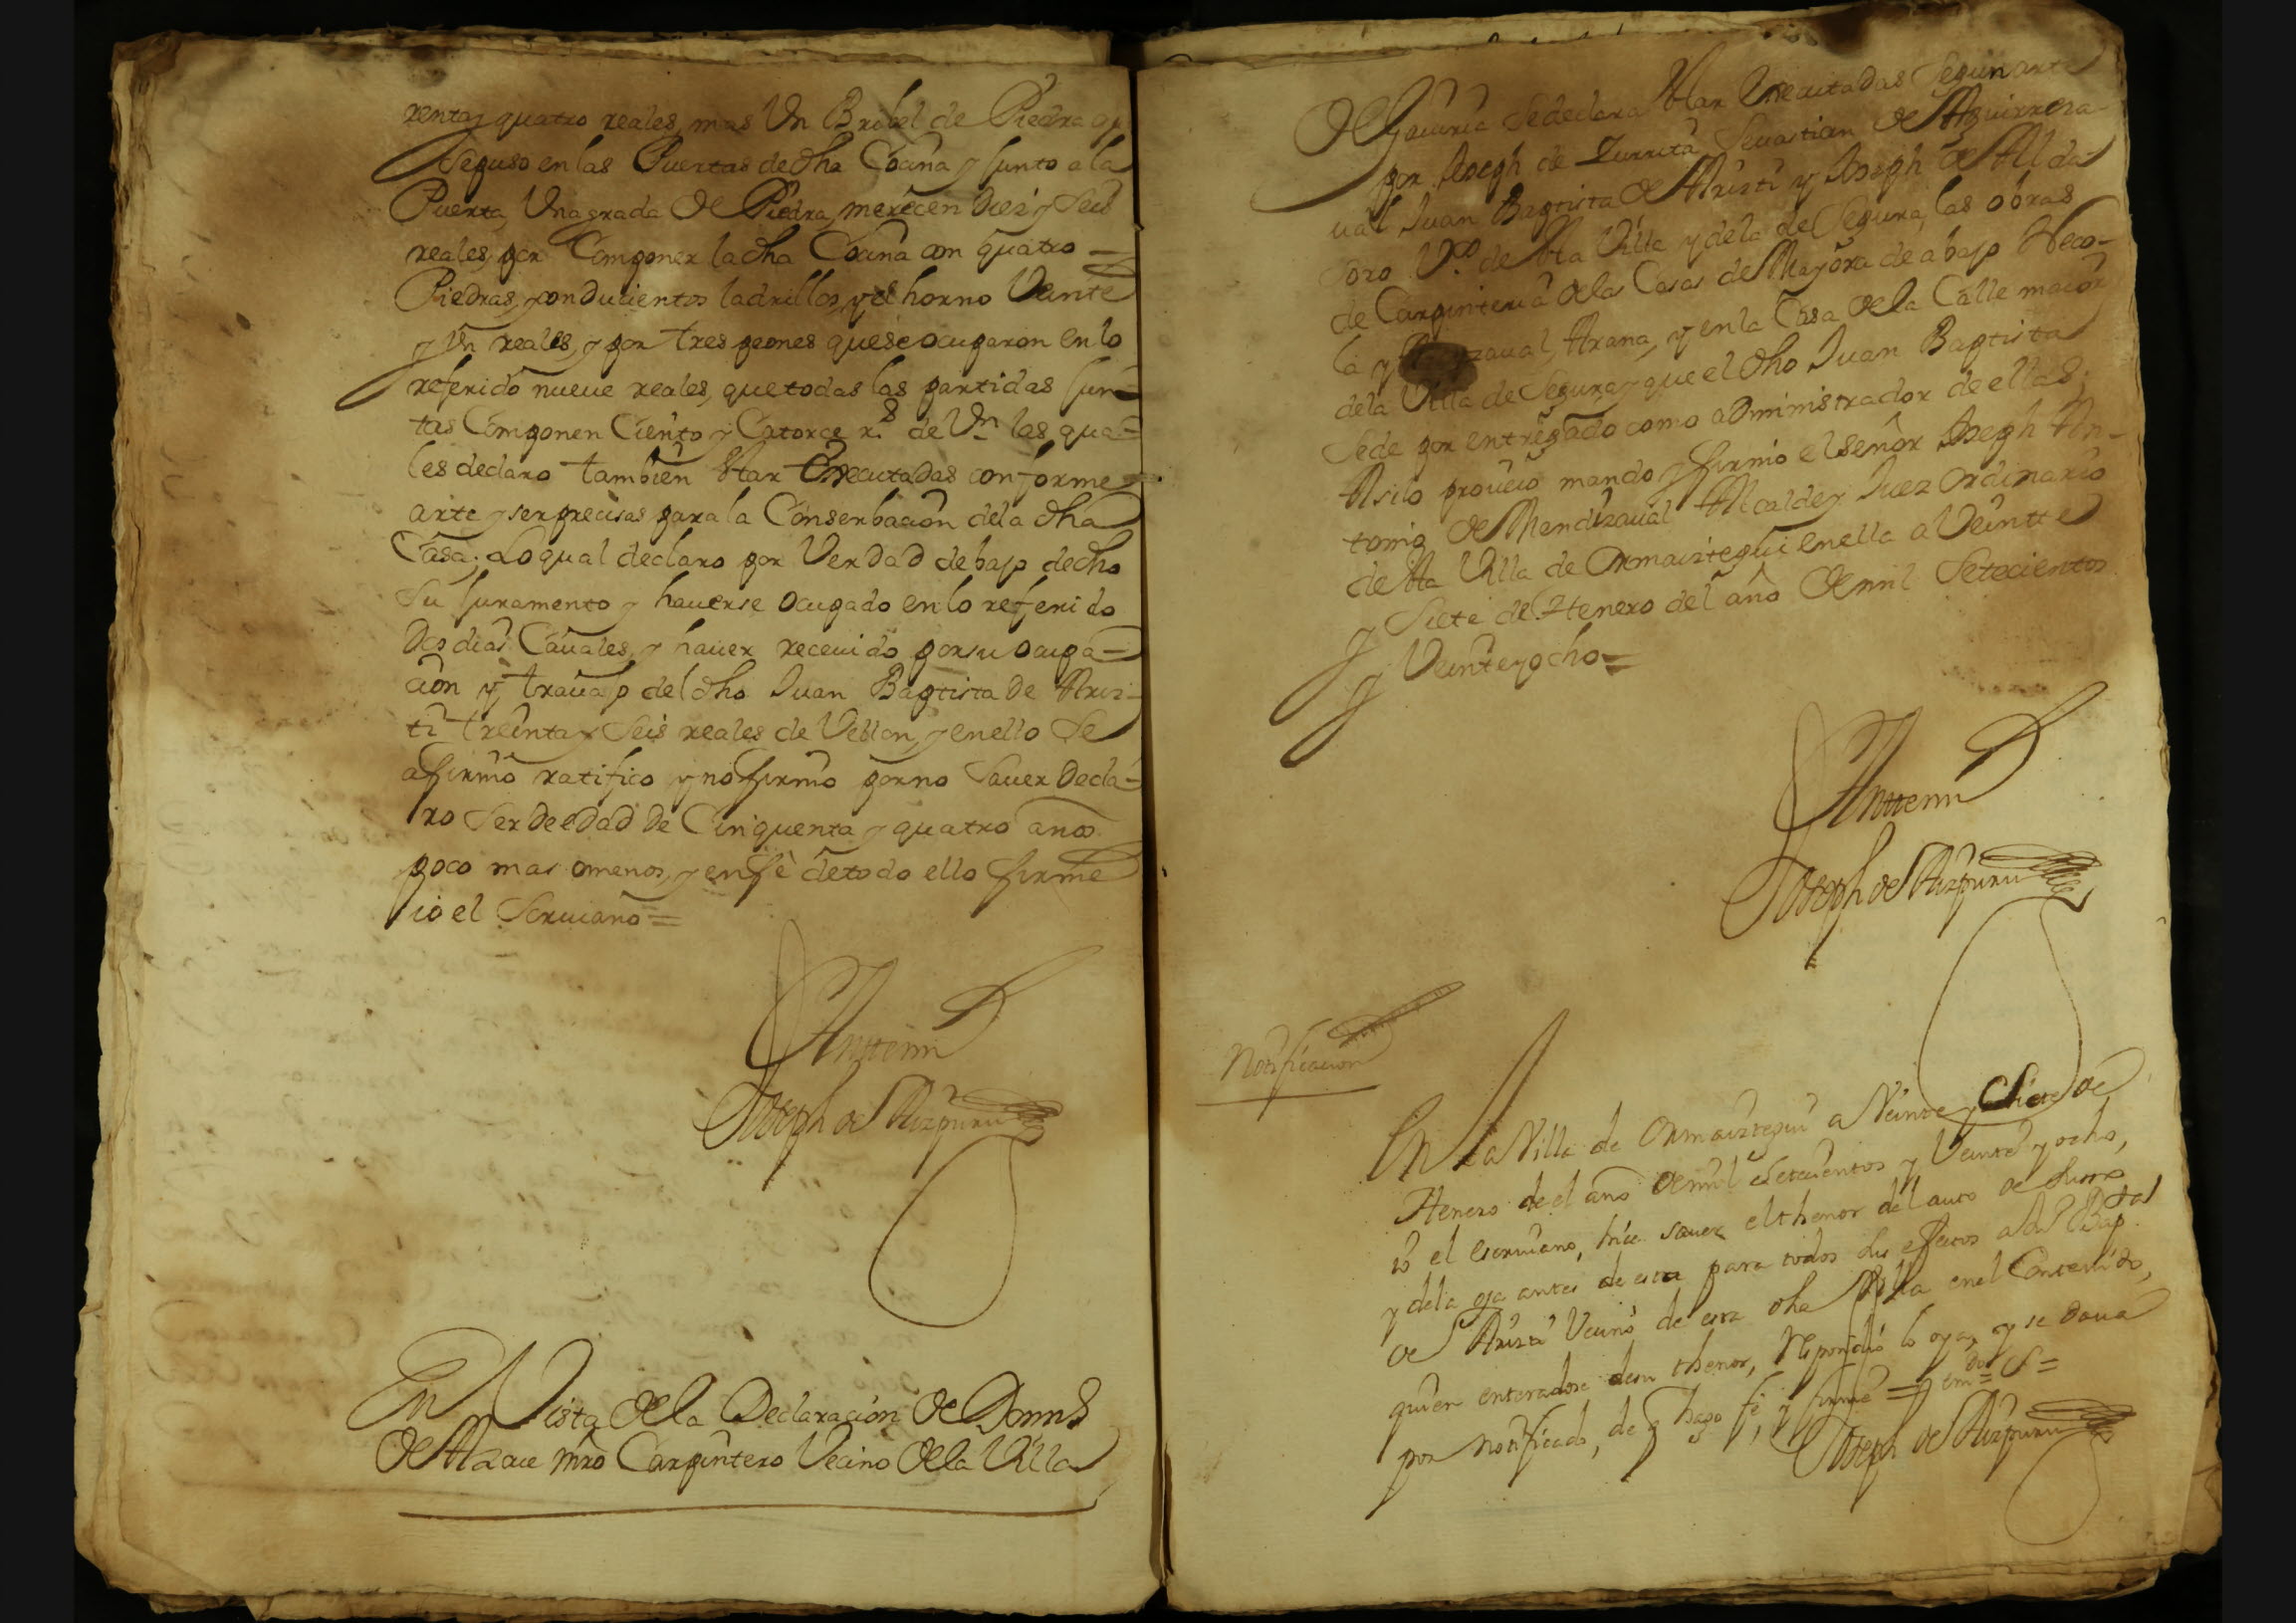 renta y quatro reales, mas Vn Brobel de Piedra q
Se puso en las Puertas de dha Cocina y Junto a la
Puerta, Vna grada de Piedra, merecen Diez y Seis
reales, por Componer la dha Cocina con quatro =
Piedras, y con Ducientos ladrillos, y el horno Veinte
y Vn reales, y por tres peones que se ocuparon en lo
referido nueue reales, que todas las partidas Jun=
tas Componen Ciento y Catorce r.s de V.n las qua=
les declaro tambien estar Executadas conforme
arte y ser precisas para la Conserbacion de la dha
Casa; Lo qual declaro por Verdad debajo de dho
Su Juramento y hauerse ocupado en lo referido
Dos dias Cauales, y hauer receuido por su ocupa=
cion y trauajo del dho Juan Baptista de Ariz=
ti treinta y Seis reales de Vellon, y en ello Se
afirmo ratifico y no firmo por no Sauer Decla=
ro Ser de edad de Cinquenta y quatro años
poco mas omenos, y en fè de todo ello firme
io el Scriuano =
Anttemi
Joseph de Aizpuru
En Vista de la Declaracion de Domns
de Alzue mro Carpintero Vecino de la Villa
de Gauiria Se declara estar Executadas Segun arte
por Joseph de Zurrita, Seuastian de Aguirreza-
ual Juan Baptista de Arizti y Joseph de Alda
Soro V.os de esta Villa y de la de Segura, las obras
de Carpinteria de las Casas de Mayora de abajo Neco-
la y zaual, Arana, y en la Casa de la Calle maior
de la Villa de Segura, y que el dho Juan Baptista
Se de por entregado como administrador de ellas;
Asi lo proueio mando y firmo el señor Joseph An-
tonio de Mendizaual Alcalde y Juez Ordinario
de esta Villa de Ormaiztegui en ella a Veintte
y Siete de Henero del año de mil Setecientos
y Veinte y ocho =
Anttemi
Joseph de Aizpuru
Notificacion
En La Villa de Ormaiztegui a Veinte y Siete de
Henero de el año de mil Setecientos y Veinte y ocho,
io el escriuano, hice sauer el thenor del auto de Suso
y de la oja antes de esta para todos sus efectos a Ju.n Bap.ta
de Arizti Vecino de esta dha Villa en el Contenido,
quien enteradose de su thenor, Respondio lo oya, y se daua
por notificado, de q hago fè, y firmè = em.do S =
Joseph de Aizpuru